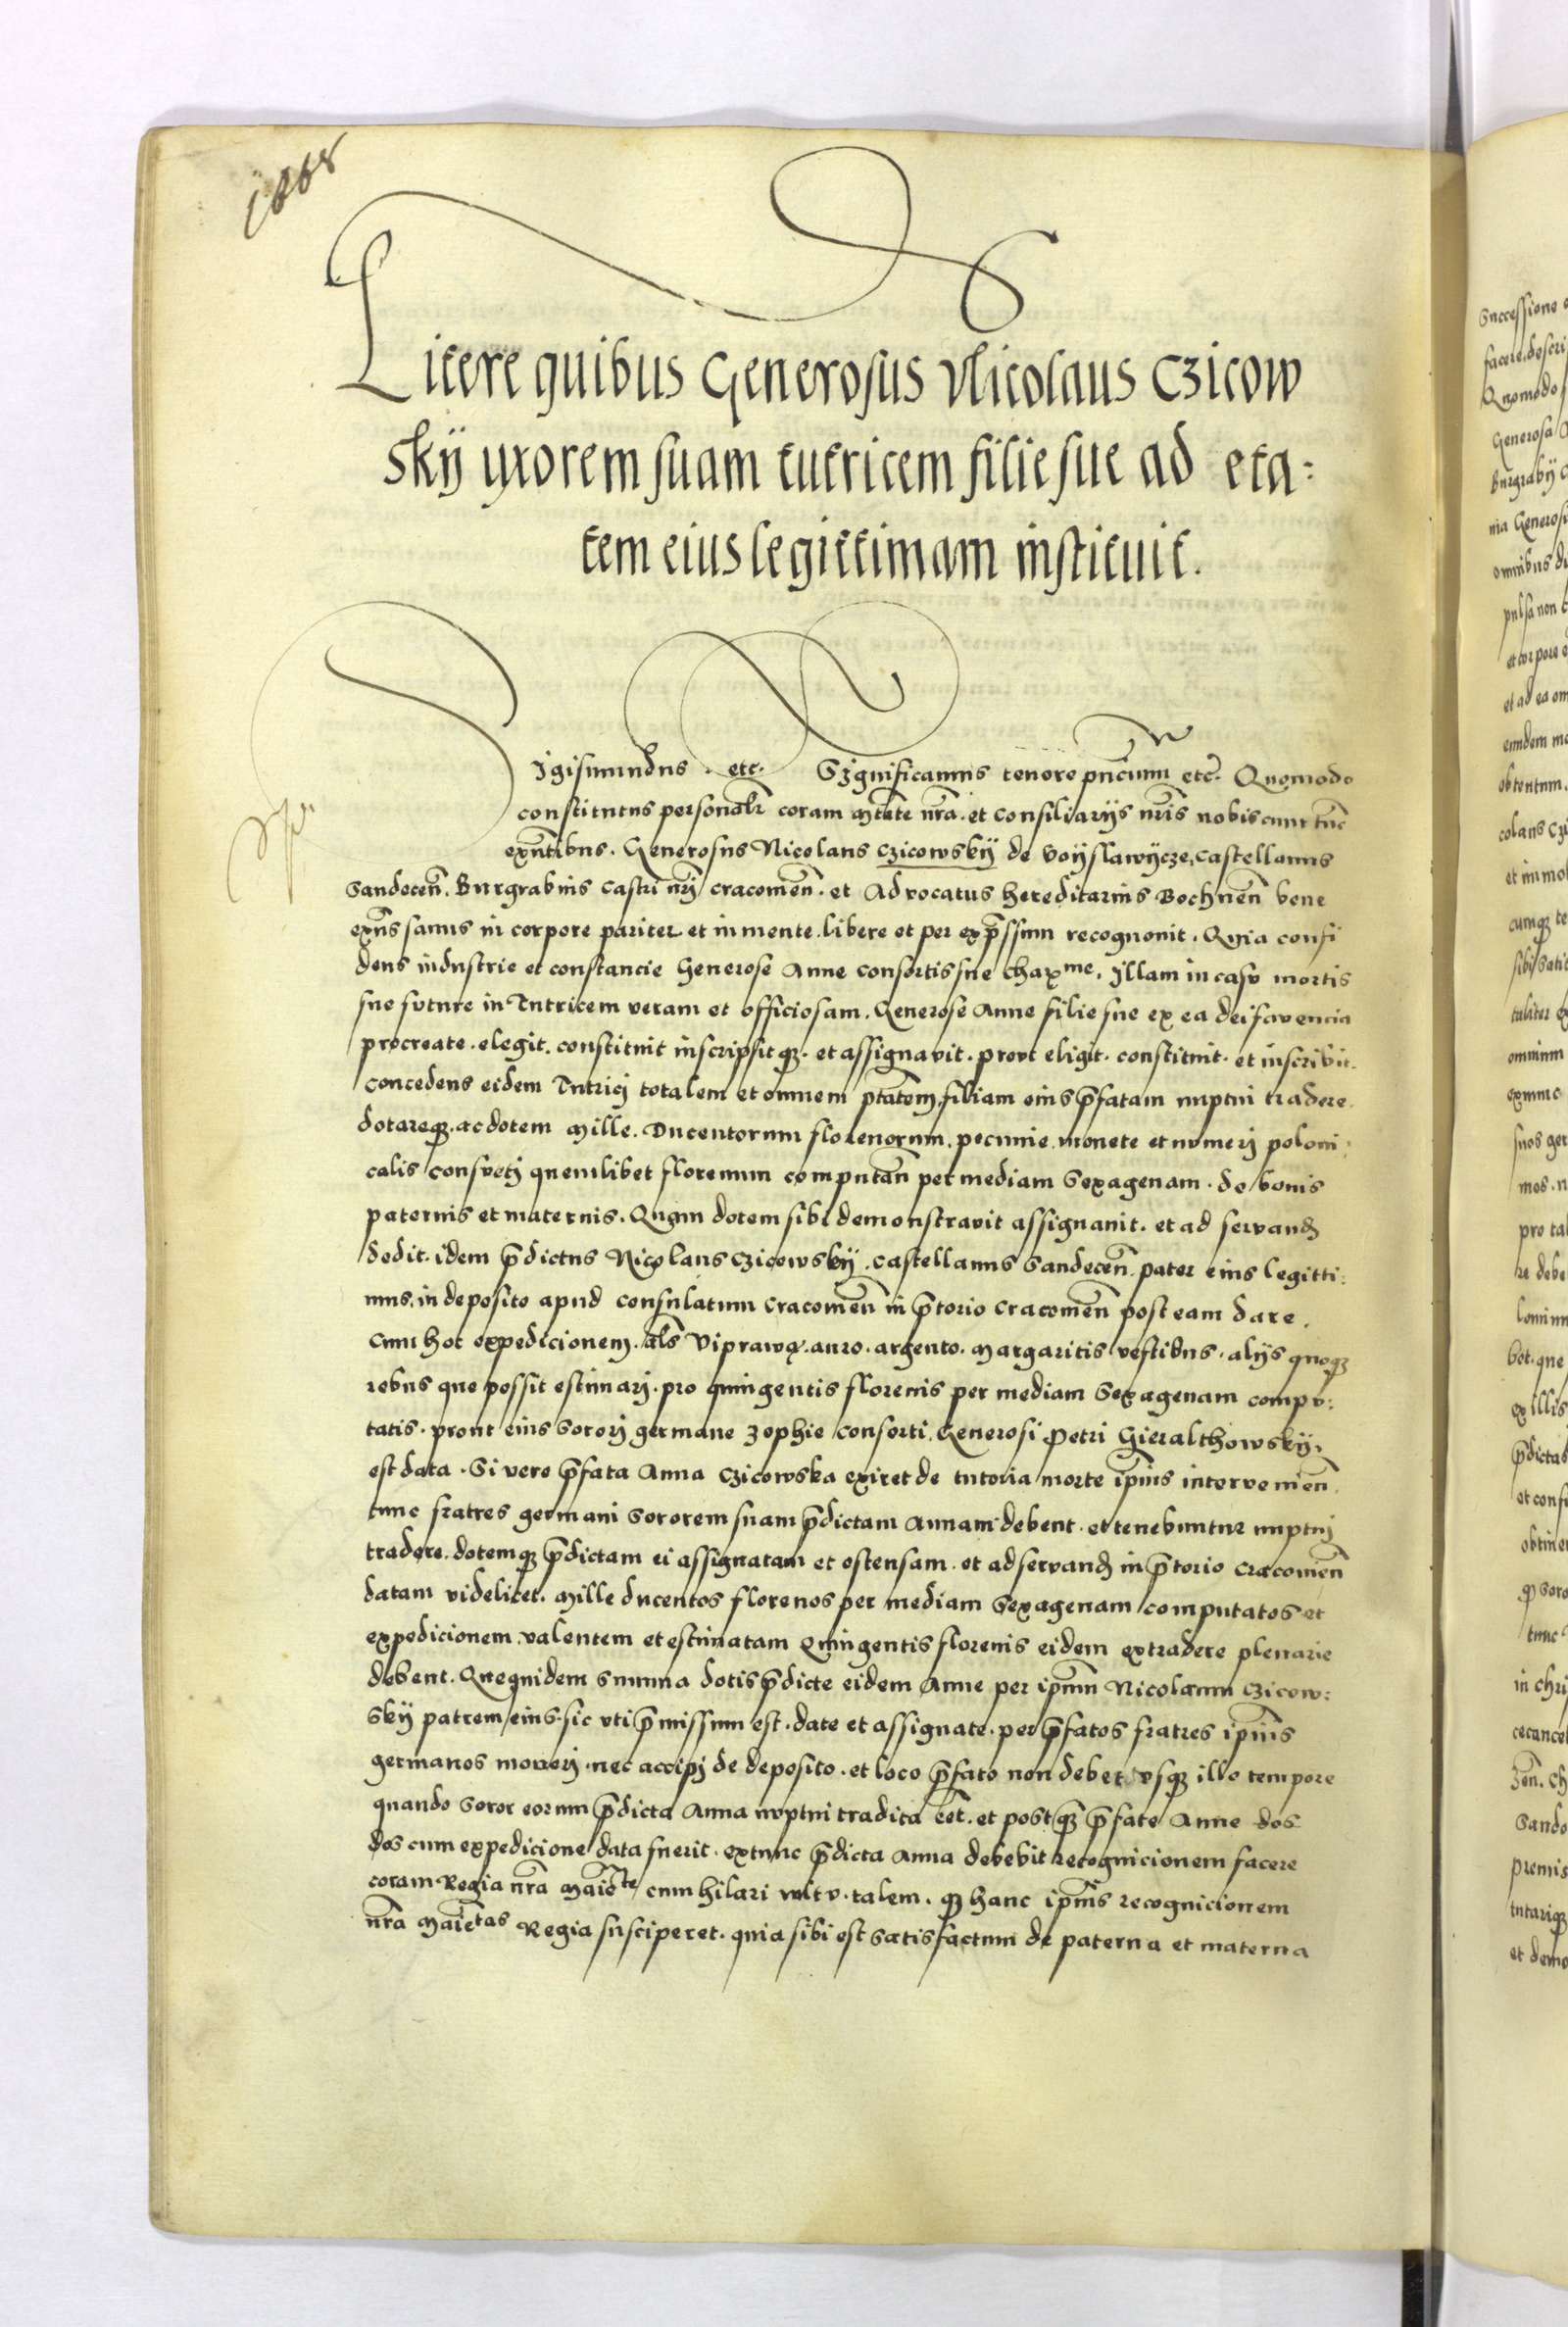 Litere quibus Generosus Nicolaus Czicow
skÿ vxorem suam tutricem filie sue ad eta:
tem eius legittimam instituit.
Sigismundus . etc. Significamus tenore pñcium etc̃. Quomodo
constitutus personalr̃ coram Mtãte nrã . et Consiliarÿs nrĩs nobiscum tũc
exñtibus . Generosus Nicolaus Czicowskÿ de Voÿslawÿcze, Castellanus
Sandecen̄. Burgrabius Castri nrĩ Cracouien̄ . et Aduocatus hereditarius Bochnen̄ bene
exñs sanus in corpore pariter et in mente . libere et per exp̄ssum recognouit . Quia confi
dens industrie et constancie Generose Anne consortis sue chax̄me, Jllam in casu mortis
sue future in Tutricem veram et officiosam . Generose Anne filie sue ex ea dei favencia
procreate . elegit . constituit inscripsit qȝ . et assignavit . prout eligit . constituit . et inscribit.
Concedens eidem Tutricj totalem et omnem ptãtem, filiam eius p̄fatam nuptui tradere
dotareqȝ . ac dotem Mille . Ducentorum florenorum . pecunie monete et numerj poloni:
calis consuetj quemlibet florenum computañ per mediam Sexagenam . de bonis
paternis et maternis . Quam dotem sibi demonstravit assignauit . et ad servand̄
dedit . idem p̄dictus Nicolaus Czicowskÿ . Castellanus Sandecen̄ . pater eius legitti:
mus . in deposito apud consulatum Cracouien̄ in p̄torio Cracouien̄ post eam dare .
Cum hoc expedicionem . als̄ Viprawą . auro . argento . Margaritis vestibus . alÿs quoqȝ
rebus que possit estimarj . pro quingentis florenis per mediam Sexagenam compu:
tatis . prout eius Sororj germane Zophie consorti . Generosi Petri Gieralthowskÿ .
est data . Si vero p̄fata Anna Czicowska exiret de tutoria morte ip̄ius intervenien̄
tunc fratres germani Sororem suam p̄dictam Annam debent . et tenebuntur nuptuj
tradere . dotemqȝ p̄dictam ei assignatam et ostensam . et ad servand̄ in p̄torio Cracouien̄
datam videlicet . Mille ducentos florenos per mediam Sexagenam computatos et
expedicionem valentem et estimatam Quingentis florenis eidem extradere plenarie
debent . Quequidem Summa dotis p̄dicte eidem Anne per ip̄um Nicolaum Czicow:
skÿ patrem eius . sic vti p̄missum est . date et assignate . per p̄fatos fratres ip̄ius
germanos moverj . nec accipj de deposito . et loco p̄fato non debet vsqȝ illo tempore
quando Soror eorum p̄dicta Anna nuptui tradita eēt . et postqȝ p̄fate Anne dos
dos cum expedicione data fuerit . extunc p̄dicta Anna debebit recognicionem facere
coram Regia nrã Maiẽte cum hilari vultu . talem . qȝ hanc ip̄ius recognicionem
nrã Maiẽtas Regia susciperet . quia sibi est Satisfactum de paterna et materna